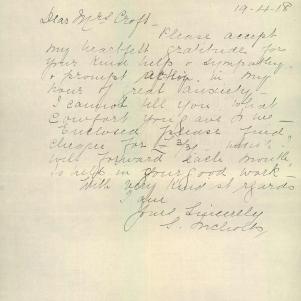 19-4-18
Dear Mrs Croft-
Please accept
my heartfelt gratitude for
your kind help & sympathy
& prompt action in my
hour of great anxiety-
I cannot tell you what
comfort you gave to me-
Enclosed please find
cheque for
will forward each month
to help in your good work-
With very kindest regards
I am
Yours Sincerely
S. Nicholls